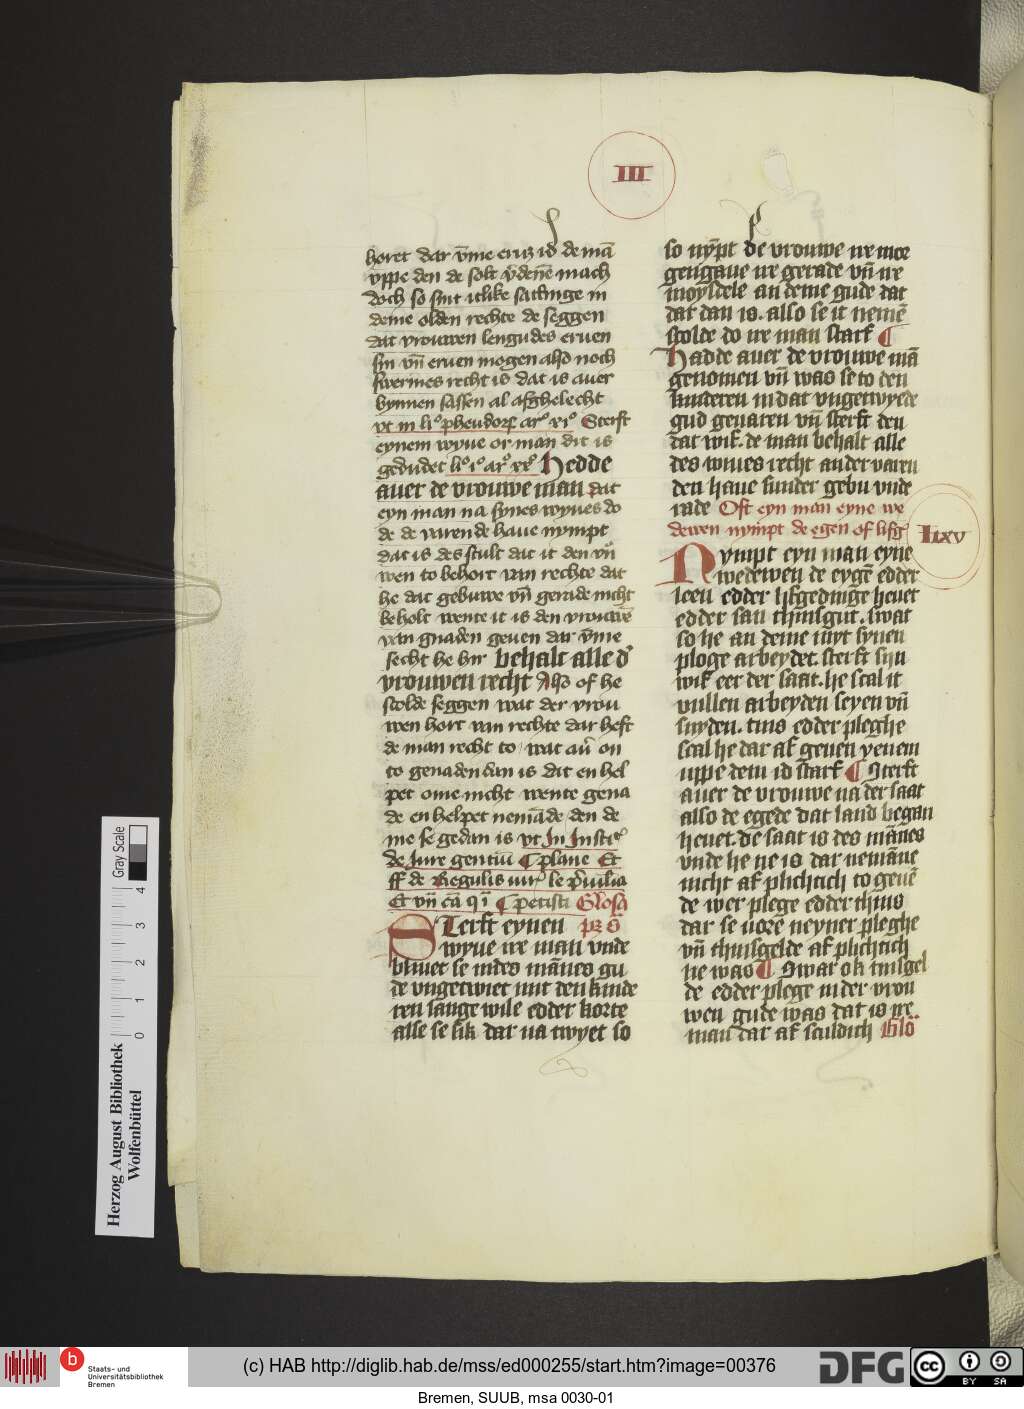 III
horet dar v̄me erus id de mā
vppe den de solt v̄denēmach
doch so sint itlike sattinge in
deme olden rechte de seggen
dat vrouwen lengudes eruen
sin vn̄ eruen mogen alsd noch
swermes recht is dat is auer
bynnen sassen al afghelecht
vt in li° pheudorū ar° xi° Sterft
eynem wyue or man dit is
gedudet li° i° ar° xx° Hedde
auer de vrouwe man dat
eyn man na synes wyues do
de de varende haue nympt
dat is des stult dat it den vrū
wen to behort van rechte dat
he dat gebuwe vn̄ gerade nicht
beholt wente it is den vrouwē
van gnaden geuen dar v̄me
secht he hir behalt alle d'
vrouwen recht Also of he
scolde seggen wat der vrou
wen hort van rechte dar heft
de man recht to wat au' on
to genaden dan is dat en hel
pet ome nicht wente gena
de en helpet nemāde den de
me se gedan is vt In Institē
de Iure gentiū ¶ plane Et
ff de Regulis iur' le p'uilia
Et vn̄ cā q i ¶ petisti Glosa
STerft eynen
wyue ire man vnde
bliuet se indes mānes gu
de vngetwiet mit den kinde
ren lange wile edder korte
alse se sik dar na twyet so
so nȳpt de vrouwe ire mor
gengaue ire gerade vn̄ ire
moysdele an deme gude dat
dat dan is. also se it nemē
scolde do ire man starf ¶
Hadde auer de vrouwe mā
genomen vn̄ was se to den
kinderen in dat vngetwyede
gud geuaren vn̄ sterft den
dat wif. de man behalt alle
des wiues recht an der varen
den haue sunder gebu vnde
rade Oft eyn man eyne we
dewen nympt de egen of lifg
Lxxv
Nympt eyn man eyne
wedewen de eygē edder
leen edder lifgedinge heuet
edder san thinsgut. swat
so he an deme myt synen
ploge arbeydet. sterft syn
wif eer der saat. he scal it
vullen arbeyden seyen vn̄
snyden. tins edder pleghe
scal he dar af geuen yenem
uppe dem id starf ¶ Sterft
auer de vrouwe na der saat
also de egede dat land began
heuet. de saat is des mānes
vnde he ne is dar nemāne
nicht af plichtich to geuē
de wer plege edder thins
dar se uorē neyner pleghe
vn̄ thinsgelde af plichtich
ne was ¶ Swar ok tinsgel
de edder plege in der vrou
wen gude was dat is ire
man dar af sculdich Glō
Gray Scale
4 3 2 1 0
Herzog August Bibliothek
Wolfenbüttel
b
Staats- und
Universitätsbibliothek
Bremen
(c) HAB http://diglib.hab.de/mss/ed000255/start.htm?image=00376
DFG
cc
BY SA
Bremen, SUUB, msa 0030-01